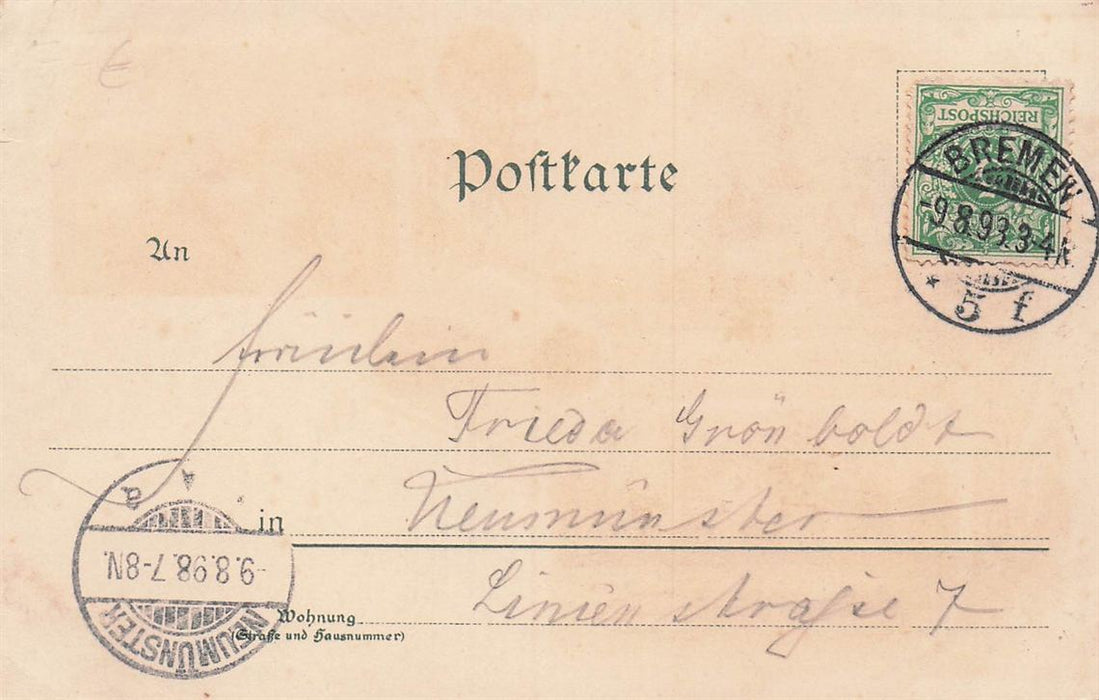 REICHSPOST
BREMEN
-9.8.98.3-4N.
* 5 f
Postkarte
An
Fräulein
Frieda Grönboldt
in Neumünster
Wohnung Linienstraße 7
(Straße und Hausnummer)
NEUMÜNSTER
-9.8.98.7-8N.